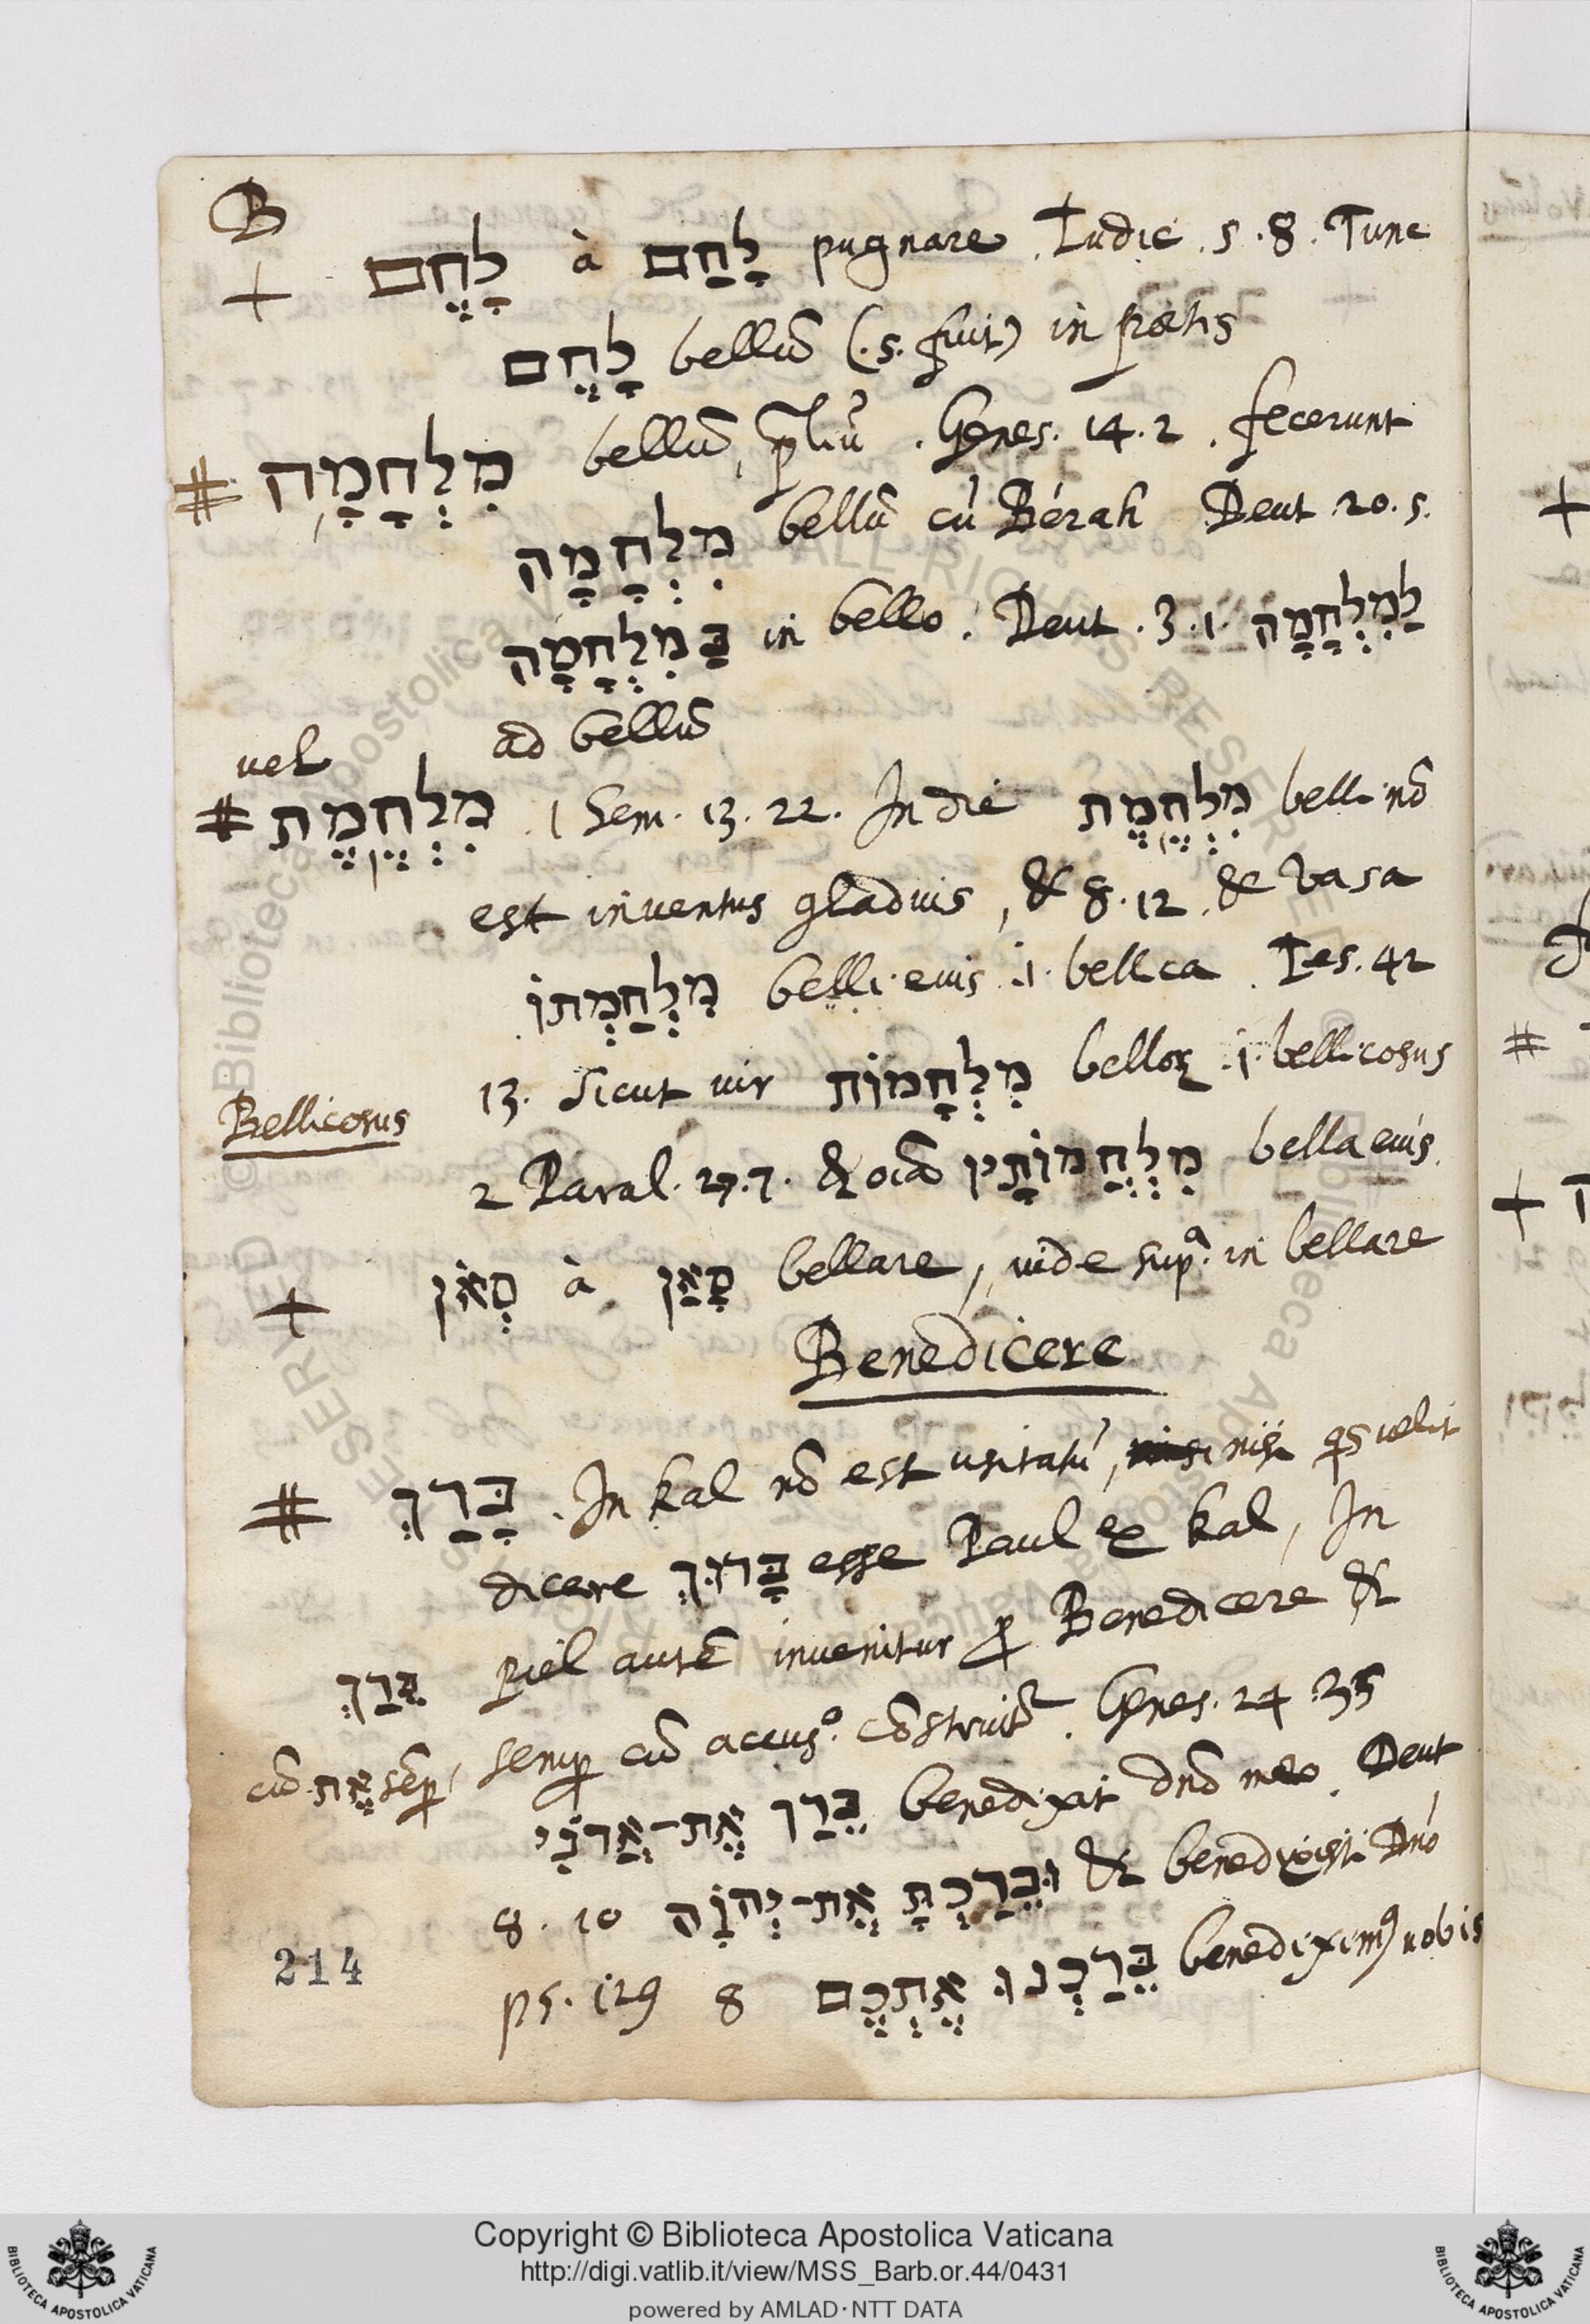 B
+ לָחֶם à לָחַם pugnare. Iudic. 5.8. Tunc
לָחֶם bellū (.s. fuit) in
# מִלְחָמָה bellū, p̄liū. Genes. 14.2. fecerunt
מִלְחָמָה bellū cū Bérah Deut 20.5.
בַּמִלְחָמָה in bello. Deut. 3.1. לַמִלְחָמָה
ad bellū
vel
# מִלְחֶמֶת . 1 Sem. 13.22. In die מִלְחֶמֶת belli nō
est inventus gladius, & 8.12. & vasa
מִלְחַמְתוֹ belli eius .i. bellica Ies. 42
13. Sicut vir מִלְחָמוֹת belloꝝ .i. bellicosus
Bellicosus
2 Paral. 27.7. & oīa מִלְחֲמוֹתָין bella eius.
+ סְאֹן à סָאַן bellare, vide supᵃ. in bellare
Benedicere
# בָּרַךְ . In kal nō est usitatū, nisi nisi qs velit
dicere בָּרוּךְ esse Paul ex kal, In
בֵּרַךְ piel autē invenitur ꝓ Benedicere &
cū אֶת semꝑ, semꝑ cū accusº. cōstruitᵘʳ. Genes. 24 35
בֵּרַךְ אֶת־אֲדֹנִי benedixit dnō meo. Deut
8.10 וּבֵרַכְתָּ אֶת־יְהוָֹה & benedixisti Dnō
ps. 129 8 בֵּרַכְנוּ אֶתְכֶם benediximꝰ vobis
214
Copyright © Biblioteca Apostolica Vaticana
http://digi.vatlib.it/view/MSS_Barb.or.44/0431
powered by AMLAD·NTT DATA
BIBLIOTECA APOSTOLICA VATICANA
BIBLIOTECA APOSTOLICA VATICANA